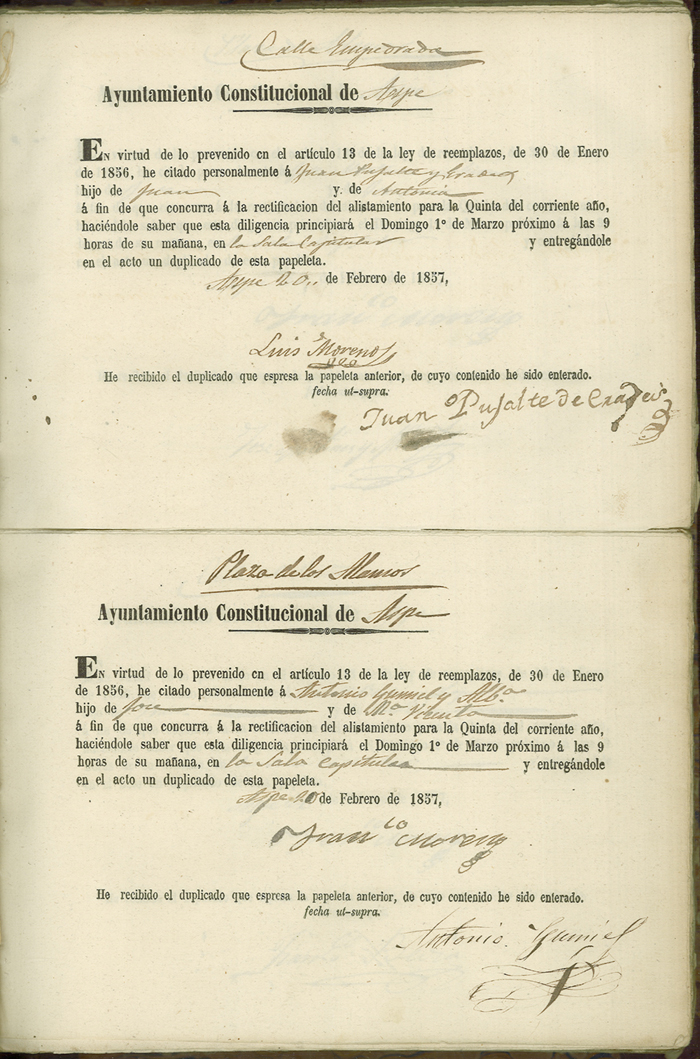 Calle Empedrada
Ayuntamiento Constitucional de Aspe
EN virtud de lo prevenido en el artículo 13 de la ley de reemplazos, de 30 de Enero
de 1856, he citado personalmente á Juan Pujalte y
hijo de Juan y de Antonia
á fin de que concurra á la rectificacion del alistamiento para la Quinta del corriente año,
haciéndole saber que esta diligencia principiará el Domingo 1º de Marzo próximo á las 9
horas de su mañana, en la Sala Capitular y entregándole
en el acto un duplicado de esta papeleta.
Aspe 20 de Febrero de 1857,
Luis Moreno
He recibido el duplicado que espresa la papeleta anterior, de cuyo contenido he sido enterado.
fecha ut-supra.
Juan Pujalte de
Plaza de los Alamos
Ayuntamiento Constitucional de Aspe
EN virtud de lo prevenido en el artículo 13 de la ley de reemplazos, de 30 de Enero
de 1856, he citado personalmente á Antonio Gumiel y Alb.ª
hijo de Jose y de Mª Vicenta
á fin de que concurra á la rectificacion del alistamiento para la Quinta del corriente año,
haciéndole saber que esta diligencia principiará el Domingo 1º de Marzo próximo á las 9
horas de su mañana, en la Sala Capitular y entregándole
en el acto un duplicado de esta papeleta.
Aspe 20 de Febrero de 1857,
Franco Moreno
He recibido el duplicado que espresa la papeleta anterior, de cuyo contenido he sido enterado.
fecha ut-supra.
Antonio Gumiel